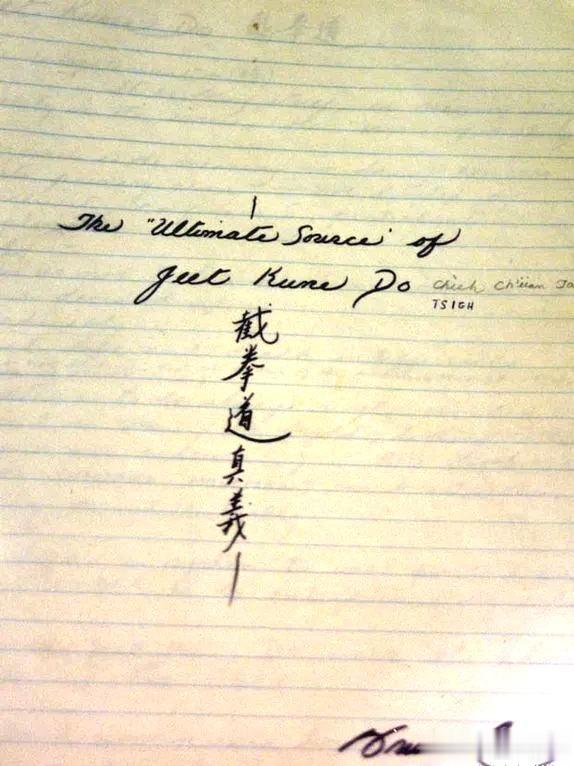 The "Ultimate Source" of
Jeet Kune Do chieh ch'üan
TSIEH
截拳道真義